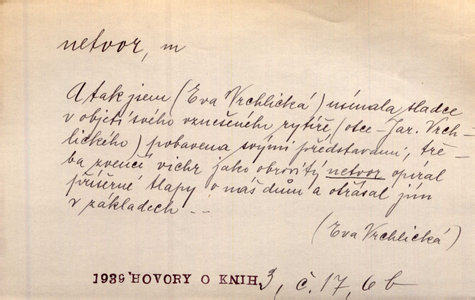 netvor, m
A tak jsem (Eva Vrchlická) usínala sladce
v objetí svého vznešeného rytíře (otce - Jar. Vrch-
lického) pobavena svými představami, tře-
ba zvenčí vichr jako obrovitý netvor opíral
příšerné tlapy o náš dům a otřásal jím
v základech ...
(Eva Vrchlická)
1939 HOVORY O KNIH. 3, č. 17, 6 b